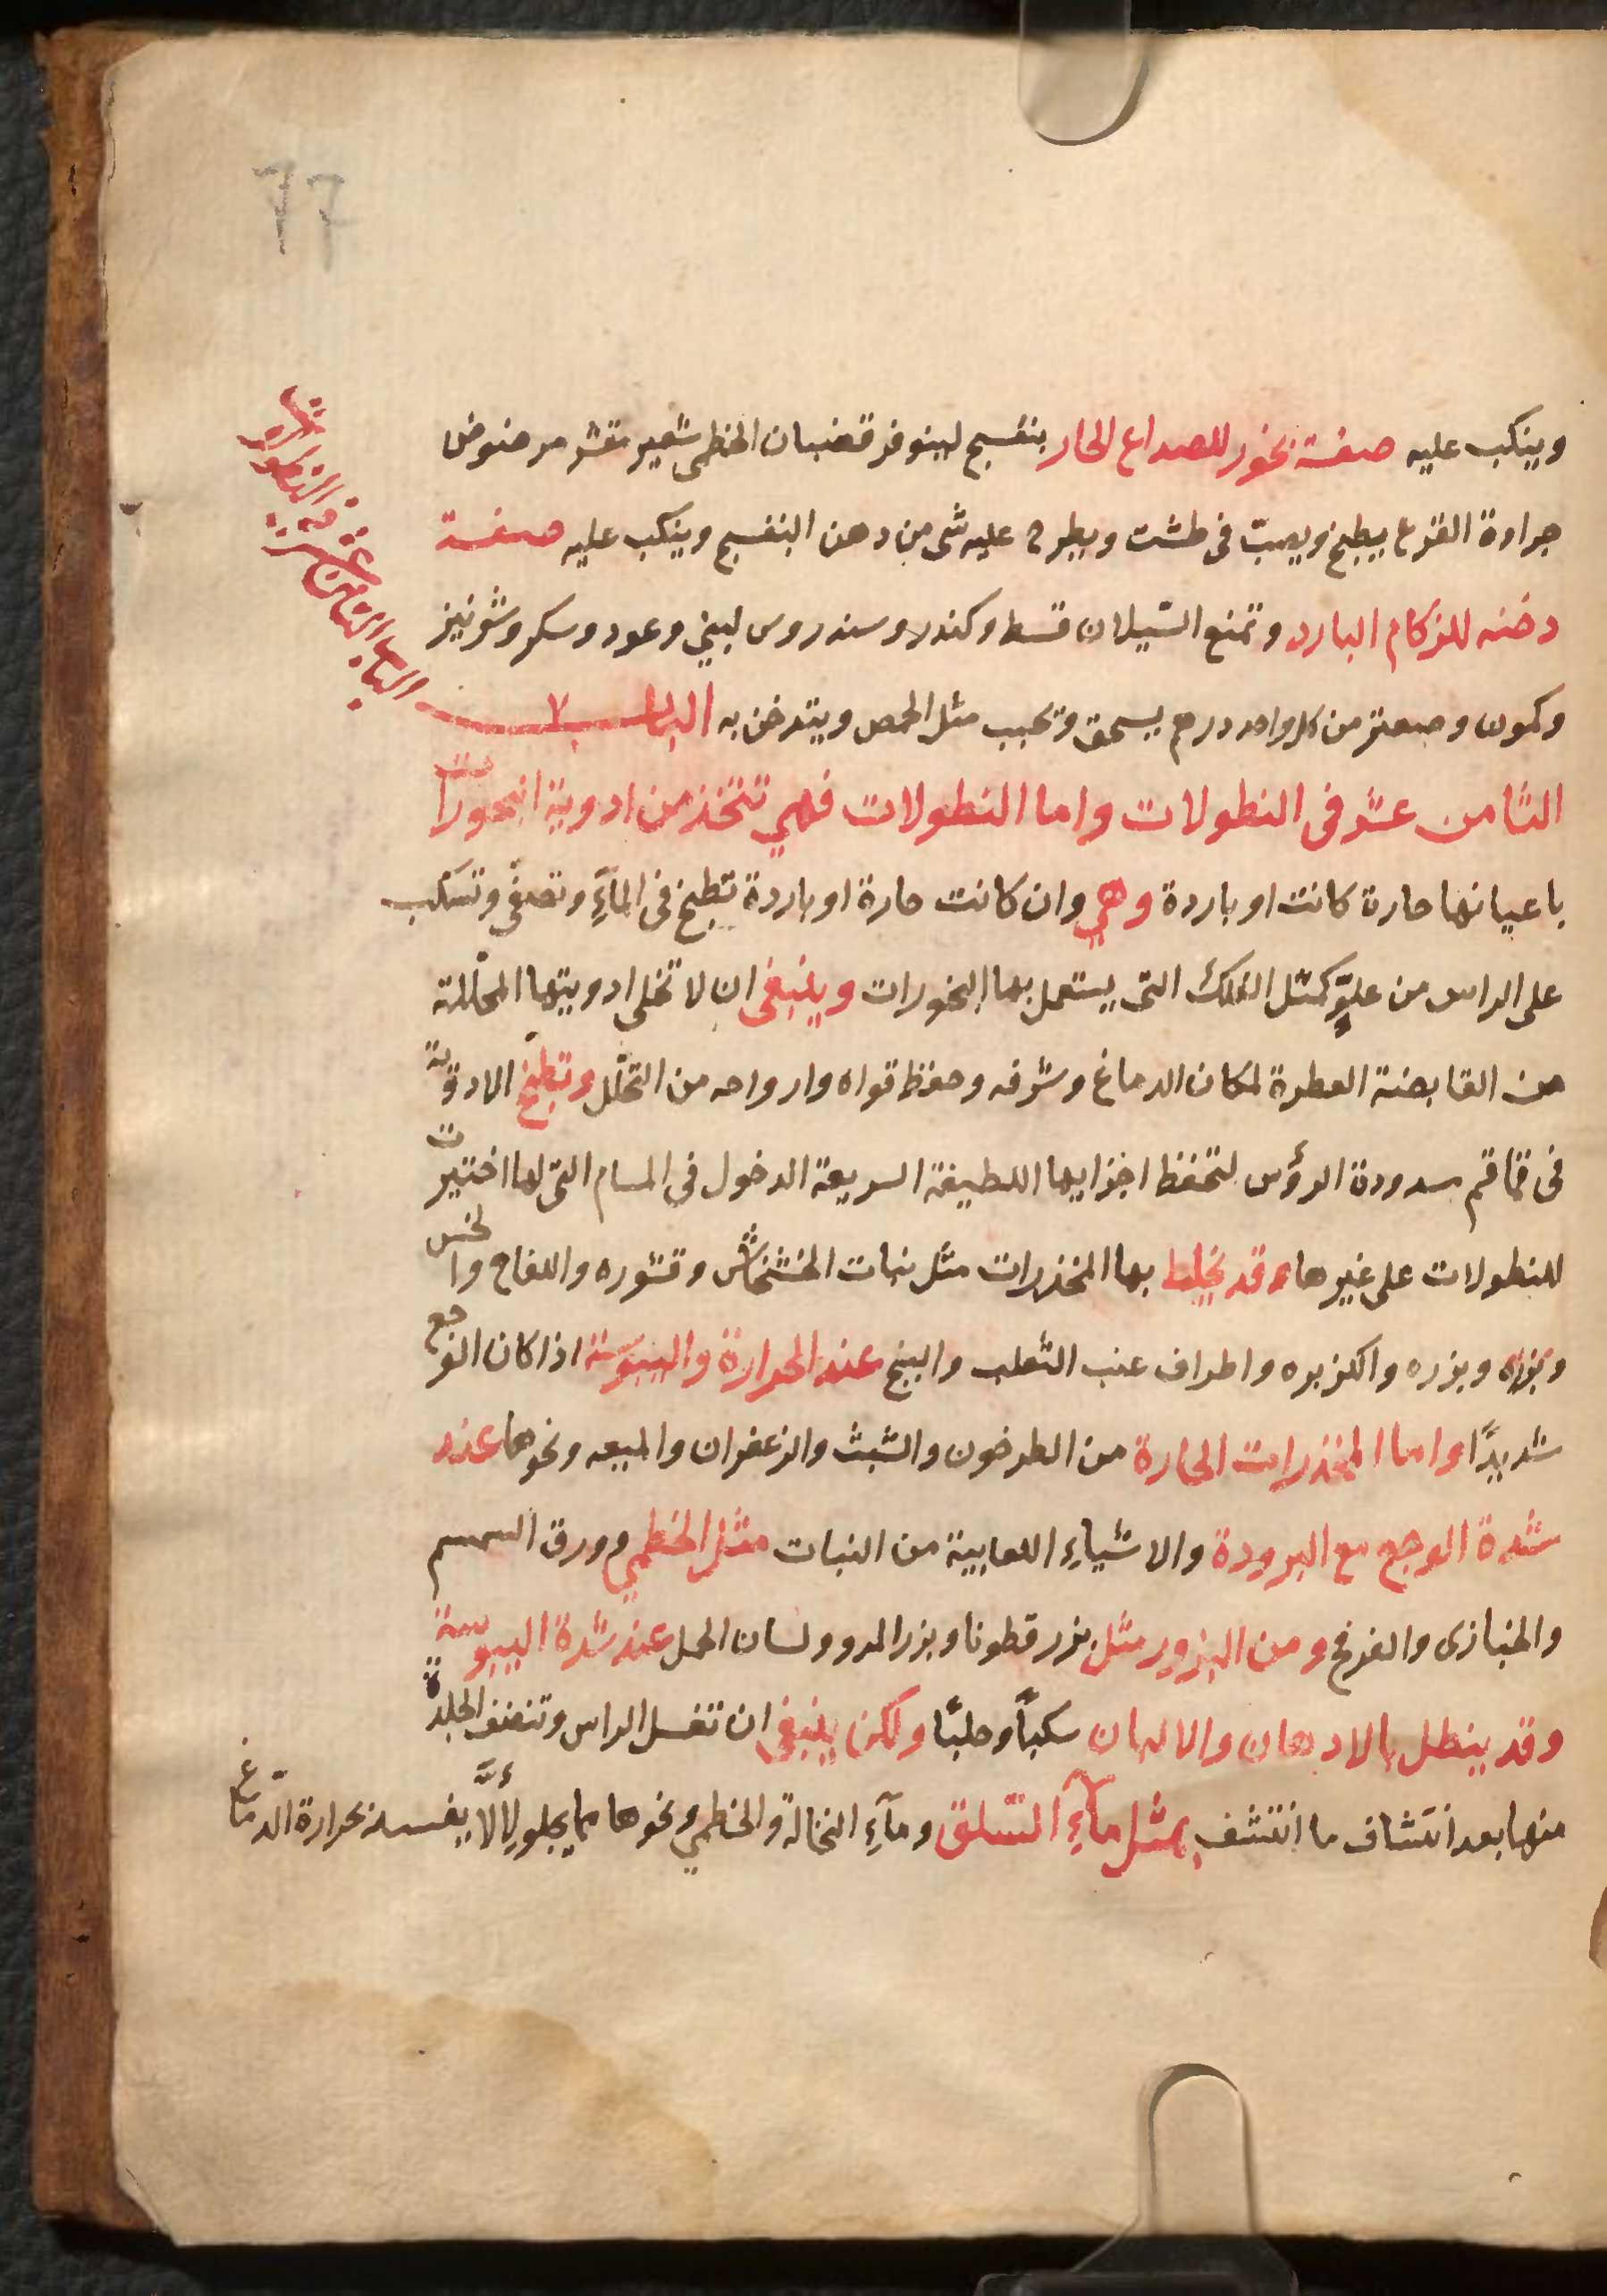 ٦٦
الباب الثامن عشر في النطولات
وينكب عليه صفة بخور للصداع الحار بنفسج لينوفر قضبان الخطمي شعير مقشر مرضوض
جرادة القرع يطبخ ويصبّ في طشت ويطرح عليه شى من دهن البنفسج وينكب عليه صفة
دخنه للزكام البارد وتمنع السّيلان قسط وكندر وسندروس لبني وعود وسكر وشونيز
وكمون وصعتر من كل واحد درهم يسحق وتحبب مثل الحمص ويتدخن به الباب
الثامن عشر في النطولات واما النطولات فهي تتخذ من ادوية البخورات
باعيانها حارة كانت او باردة وهي وان كانت حارة او باردة تطبخ في المآءِ وتصفّى وتسكب
على الراس من علوّ كمثل التلك التى يستعمل بها البخورات وينبغى ان لا تخلى ادويتها المحلّلة
من القابضة العطرة لمكان الدماغ وشرفه وحفظ قواه وارواحه من التحلّل وتطبخ الادوية
في قماقم مسدودة الرؤس لتحفظ اجزايها اللطيفة السريعة الدخول في المسام التى لها اختيرت
للنطولات على غيرها وقد يخلط بها المخذرات مثل نبات الخشخاش وقشوره واللفاح والخس
وبزره وبزره والكزبره واطراف عنب الثعلب والبنج عند الحرارة واليبوسة اذا كان الوجع
شديدًا واما المخذرات الحارة من الطرخون والشبث والزعفران والميعه ونحوها عند
شدة الوجع مع البرودة والاشياءِ اللعابية من النبات مثل الخطمي وورق السمسم
والخبازى والفرفخ ومن البزور مثل بزر قطونا وبزر المرو ولسان الحمل عند شدة اليبوسة
وقد ينطل بالادهان والالبان سكبًا وحلبًا ولكن ينبغي ان تغسل الراس وتنضف الجلدة
منها بعد انتشاف ما انتشف بمثل مآءِ السّلق ومآءِ النخالة والخطمي ونحوها مما يجلو لِأَلَّا يفسد بحرارة الدّماغ